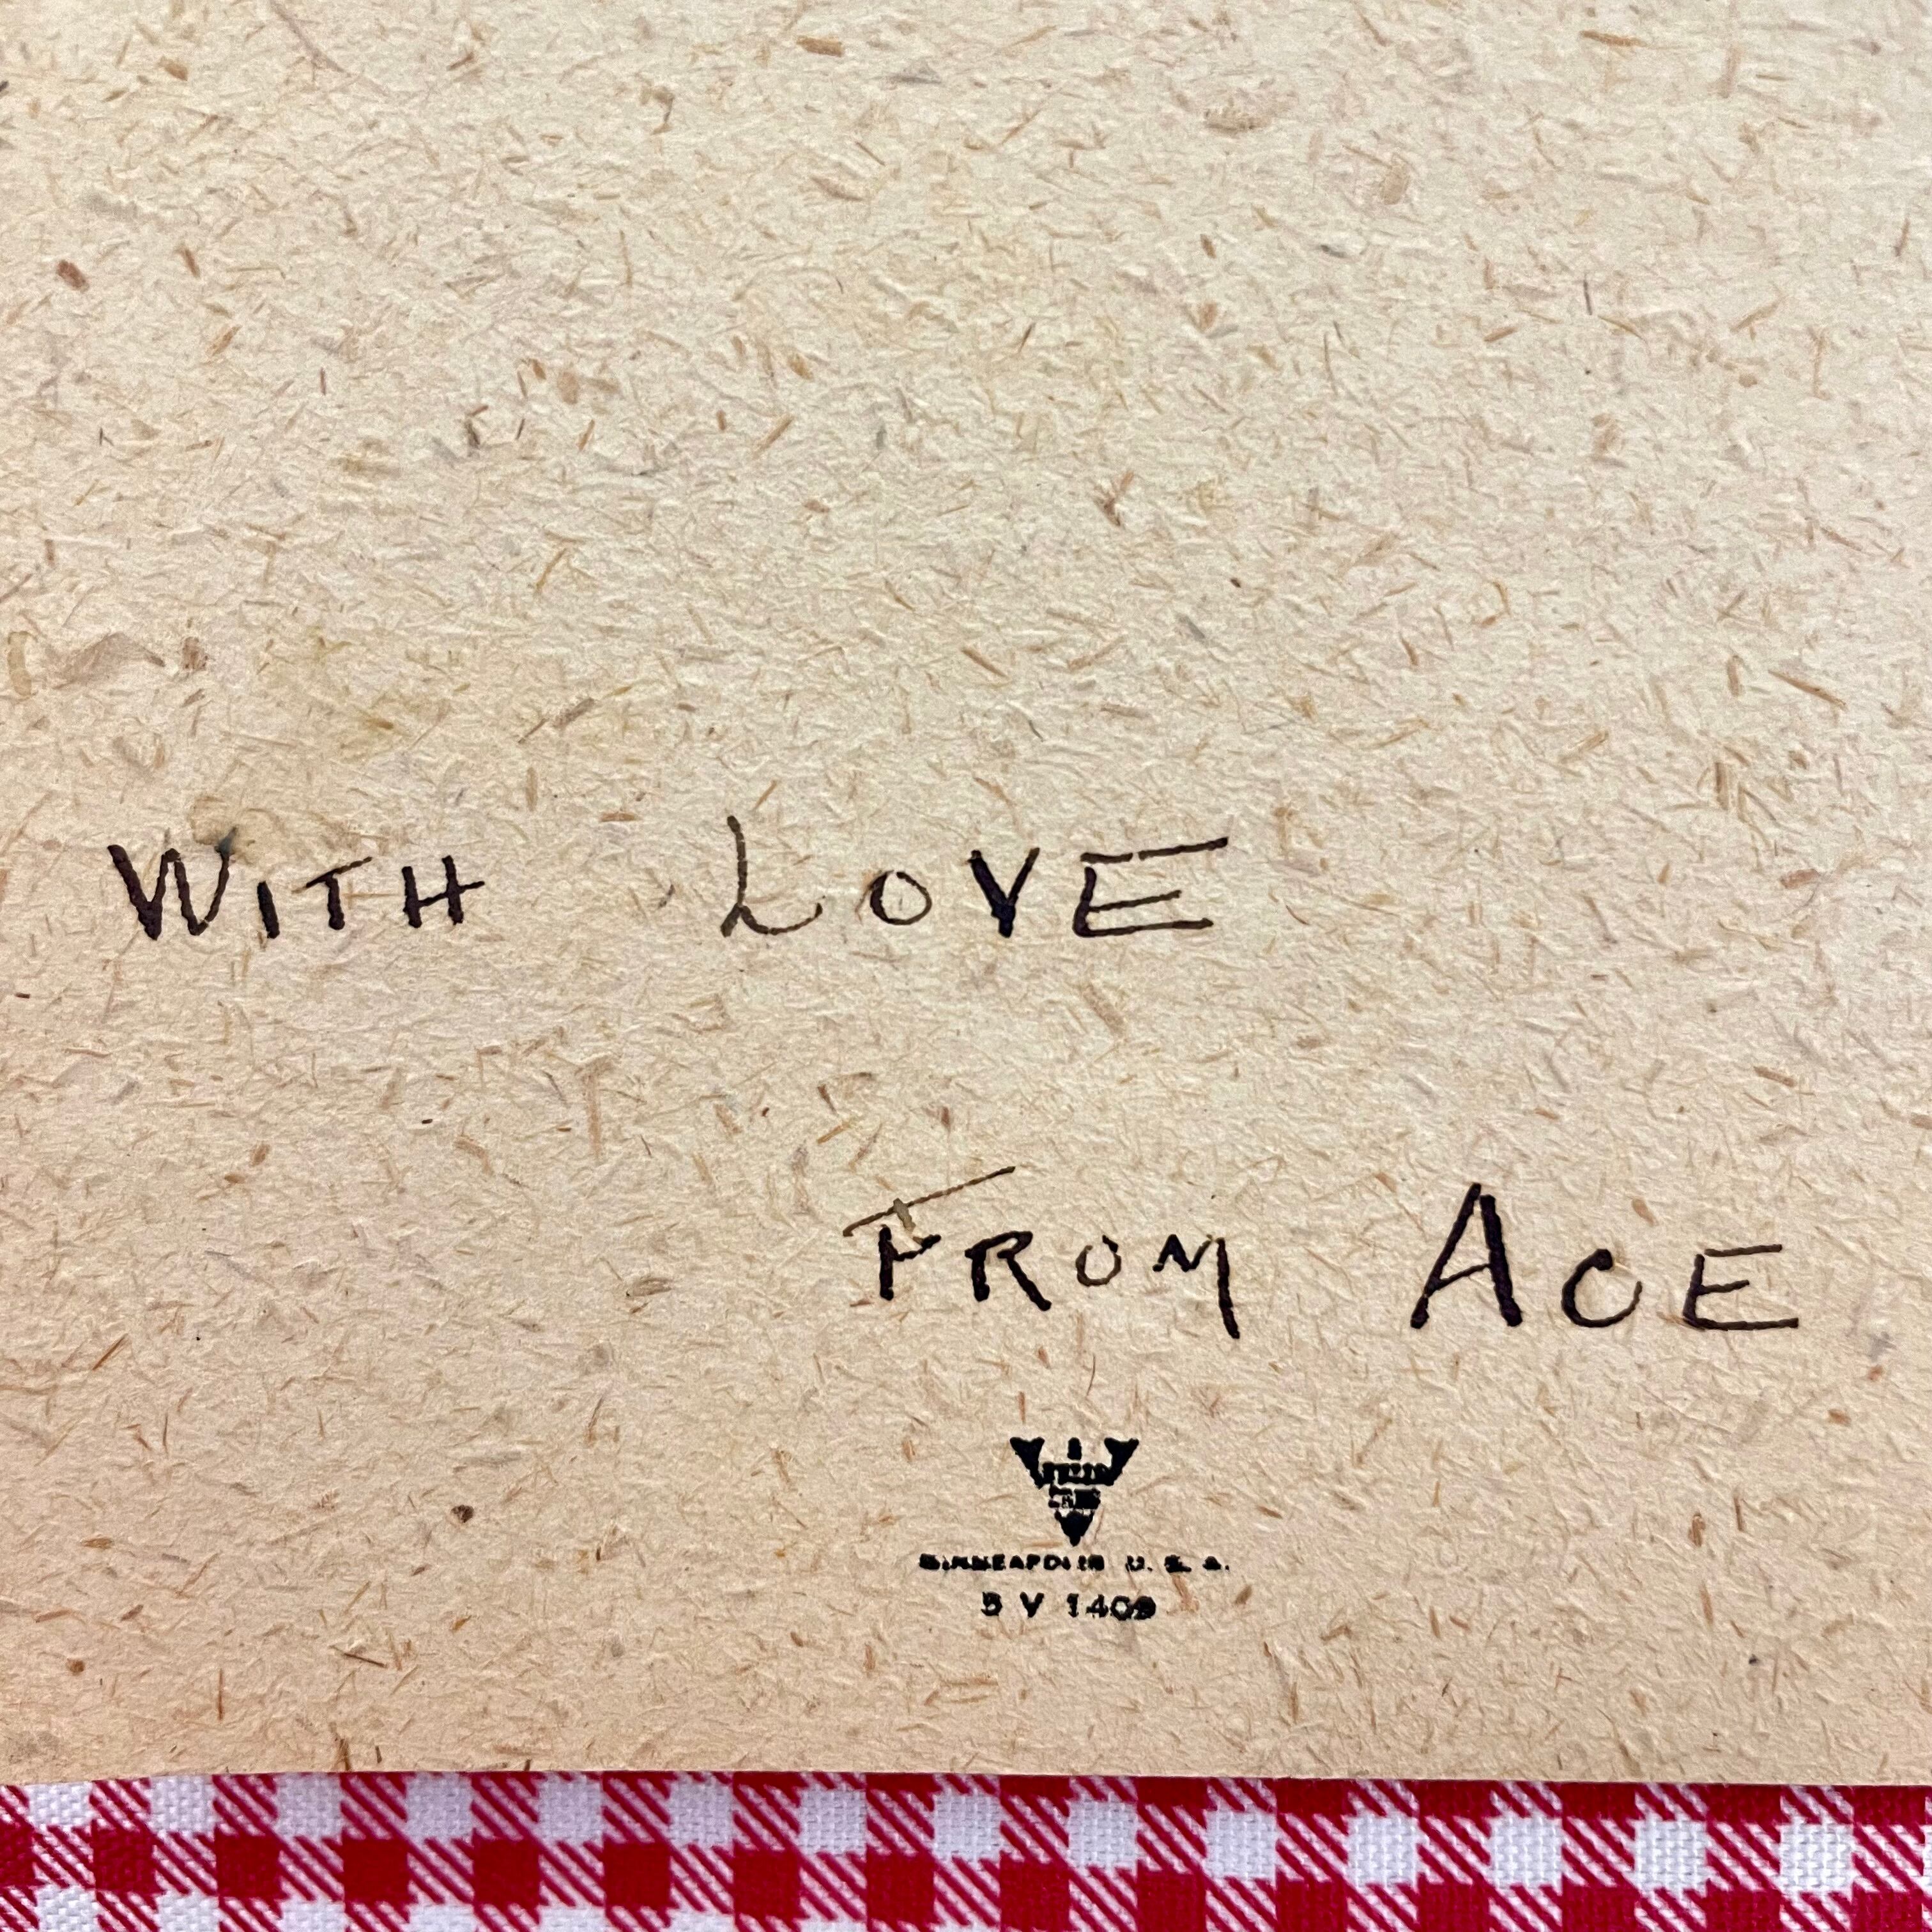 WITH LOVE
FROM ACE
MINNEAPOLIS U. S. A.
3 V 1409